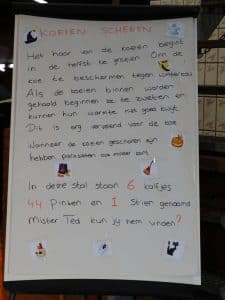 KOEIEN SCHEREN
Het haar van de koeien begint
in de herfst te groeien. Om de
koe te beschermen tegen winterkou
Als de koeien binnen worden
gehaald beginnen ze te zweten en
kunnen hun warmte niet goed kwijt
Dit is erg vervelend voor de koe
Wanneer de koeien geschoren zijn
hebben parasieten ook minder kans
In deze stal staan 6 kalfjes
44 Pinken en 1 Stier genaamd
Mister Ted kun jij hem vinden?